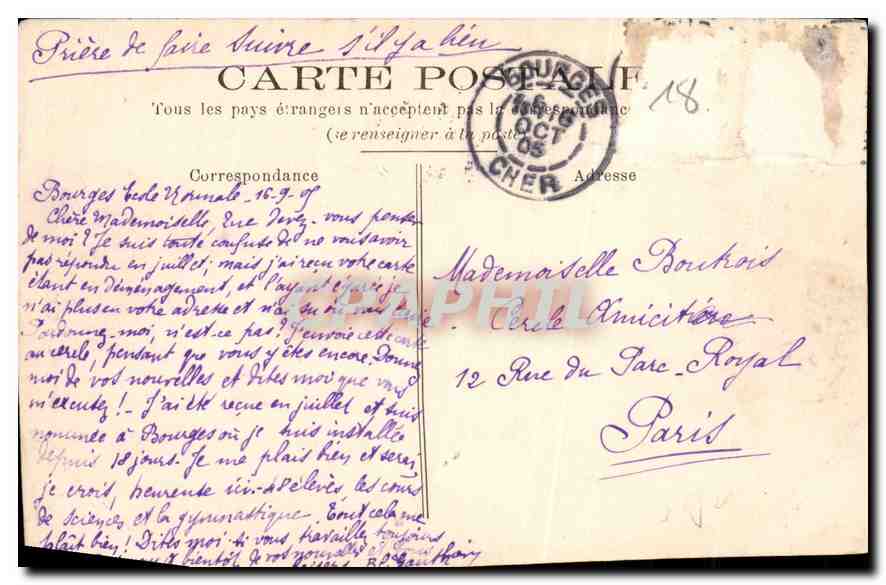 Prière de faire suivre s'il y a lieu
CARTE POSTALE
Tous les pays étrangers n'acceptent pas la correspondance
(se renseigner à la poste)
18
BOURGES
16
OCT
05
CHER
Correspondance
Bourges Ecole Normale _ 16_9_05
Chère Mademoiselle, Que devez-vous penser
de moi? Je suis toute confuse de ne vous avoir
pas répondu en juillet; mais j'ai reçu votre carte
étant en déménagement, et l'ayant égarée je
n'ai plus eu votre adresse et n'ai su où vous écrire
Pardonnez-moi, n'est-ce pas? J'envoie cette carte
au cercle, pensant que vous y êtes encore. Donnez
moi de vos nouvelles et dites moi que vous
m'excusez! _ J'ai été reçue en juillet et suis
nommée à Bourges où je suis installée
depuis 18 jours. Je me plais bien et serai
je crois, heureuse ici. 48 élèves, les cours
de sciences et la gymnastique. Tout cela me
plait bien! Dites moi si vous travaillez toujours
bientôt de vos nouvelles et
Gauthier
Adresse
Mademoiselle Boutrois
Cercle Amicitia
12 Rue du Parc-Royal
Paris
CPAPHIL